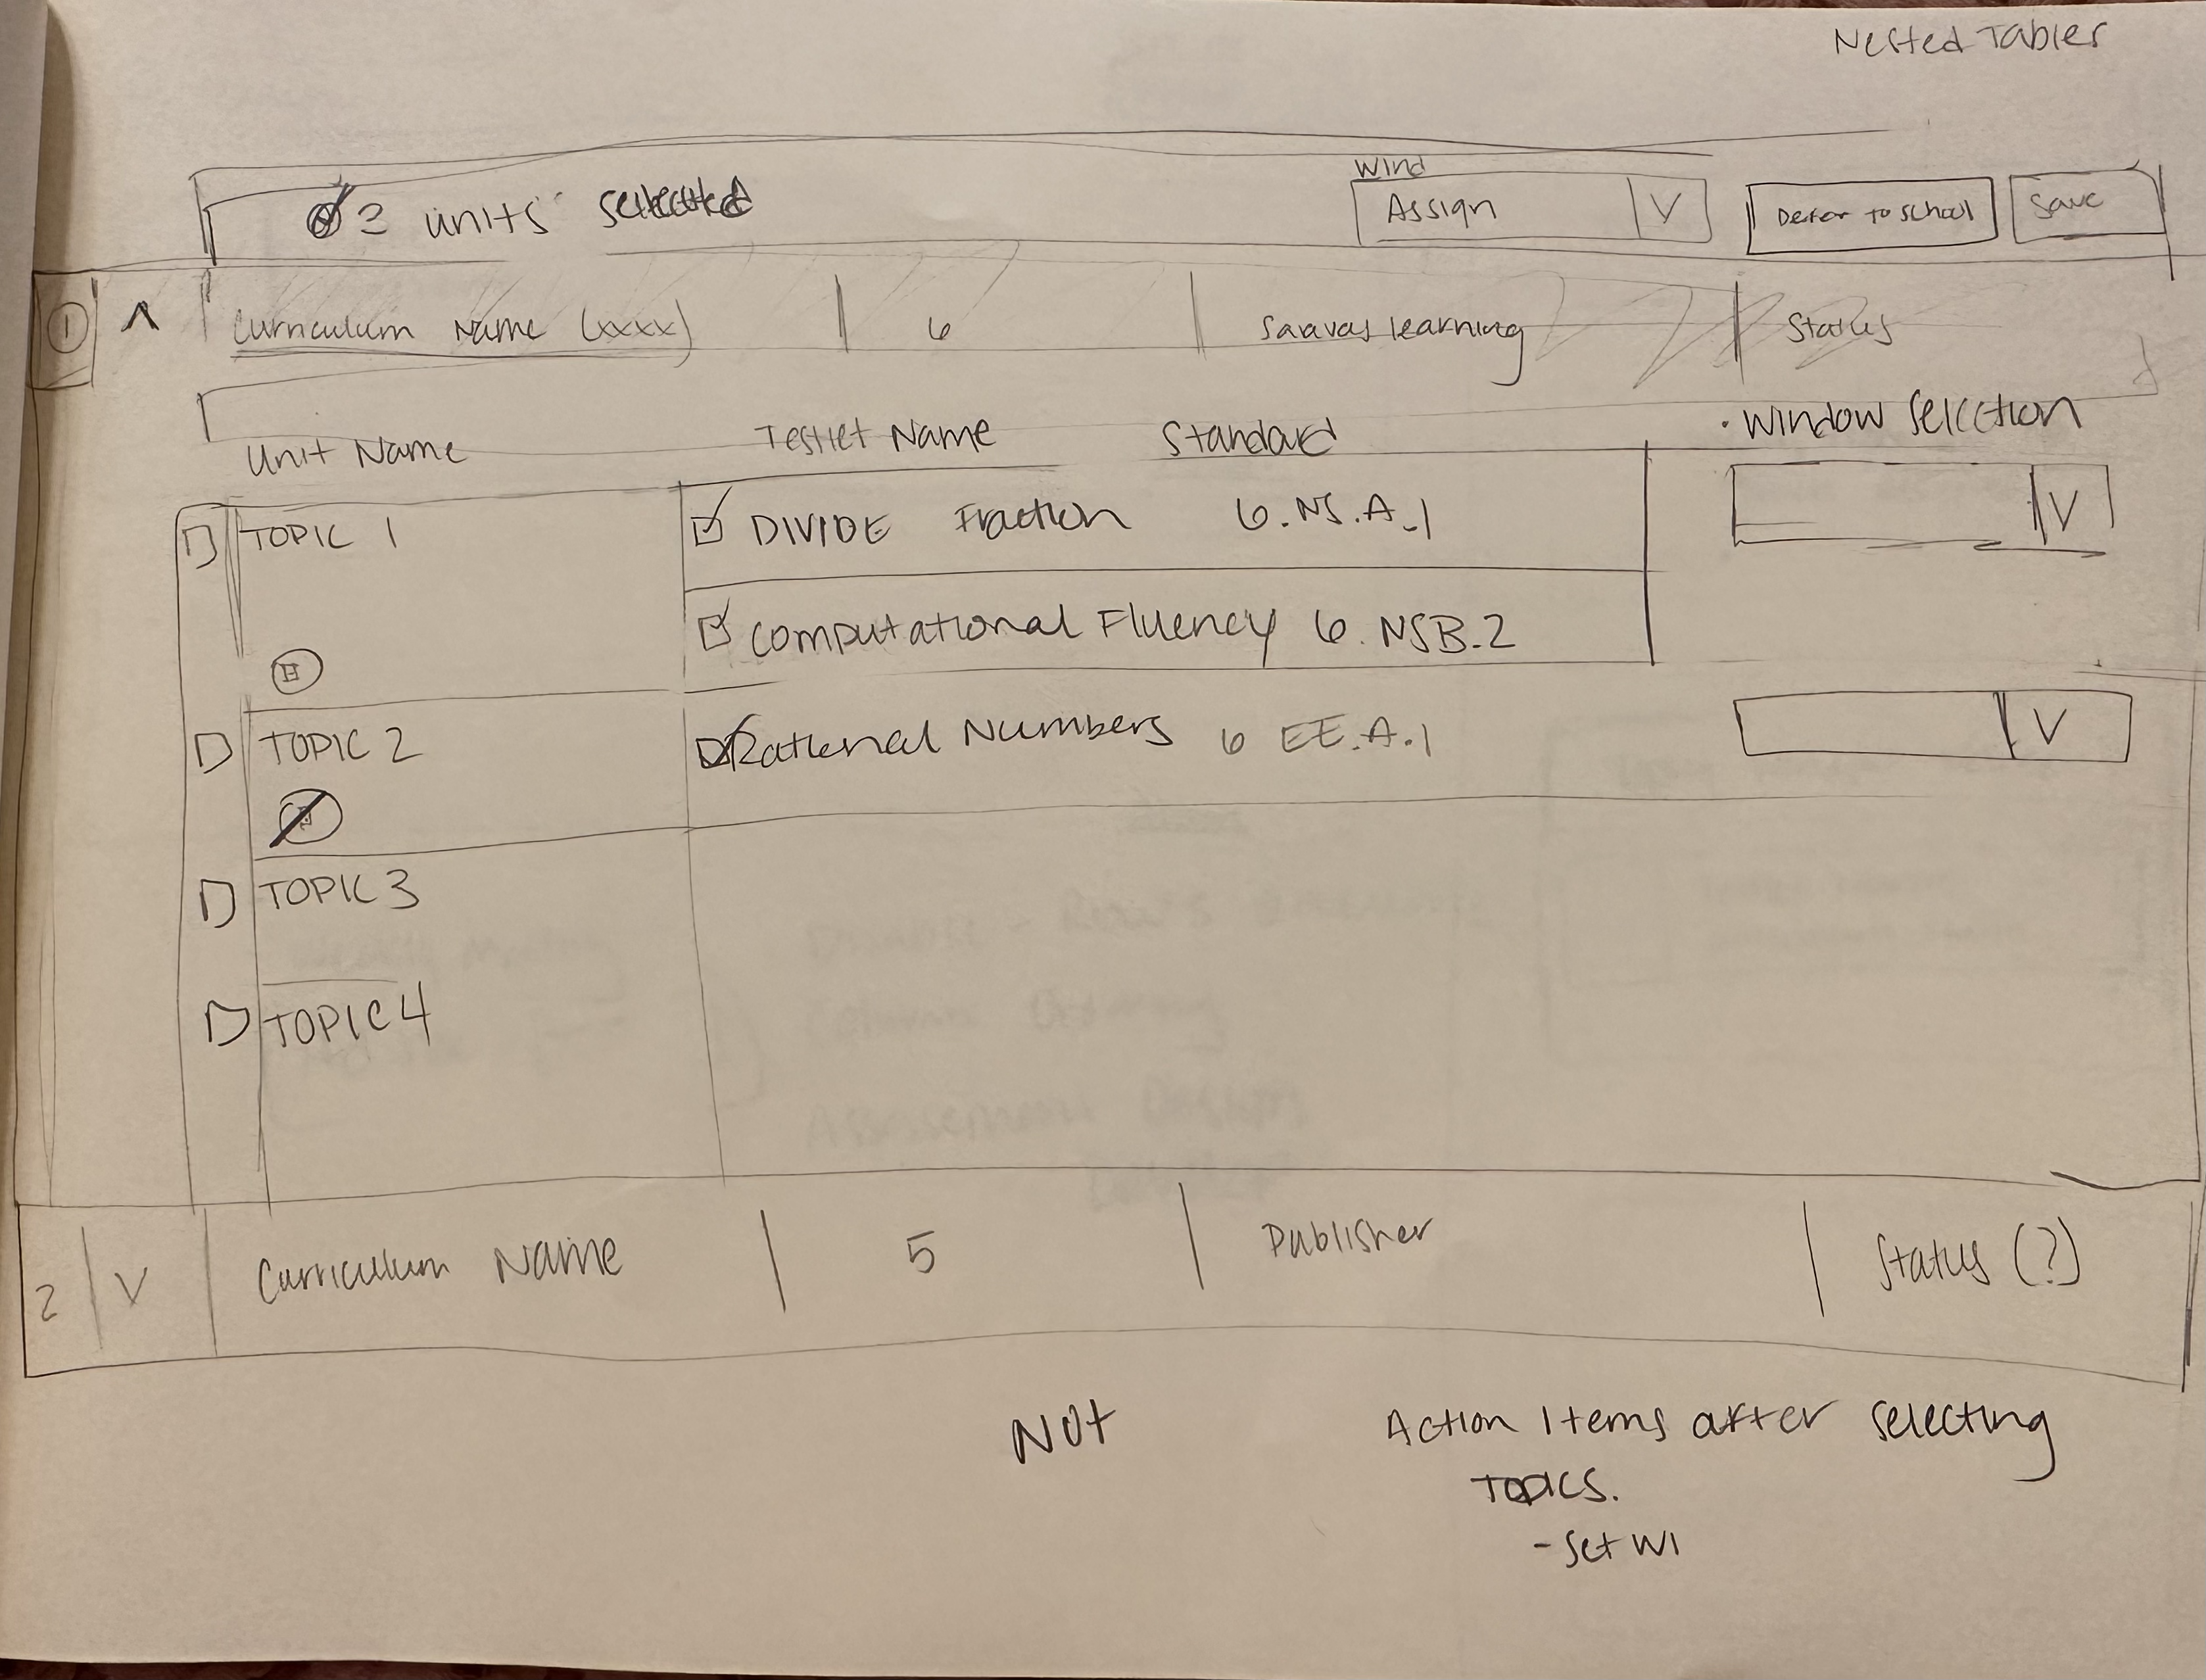 Nested Tables
2 units selected
Wind
Assign V
Defer to School
Save
1 ^ Curriculum Name (xxxx) 6 Saavas learning Status
Unit Name Testlet Name Standard • Window Selection
TOPIC 1 DIVIDE Fraction 6.NS.A.1 V
Computational Fluency 6.NSB.2
TOPIC 2 Rational Numbers 6 EE.A.1 V
TOPIC 3
TOPIC 4
2 V Curriculum Name 5 Publisher Status (?)
Not
Action Items after selecting
TOPICS.
- Set WI